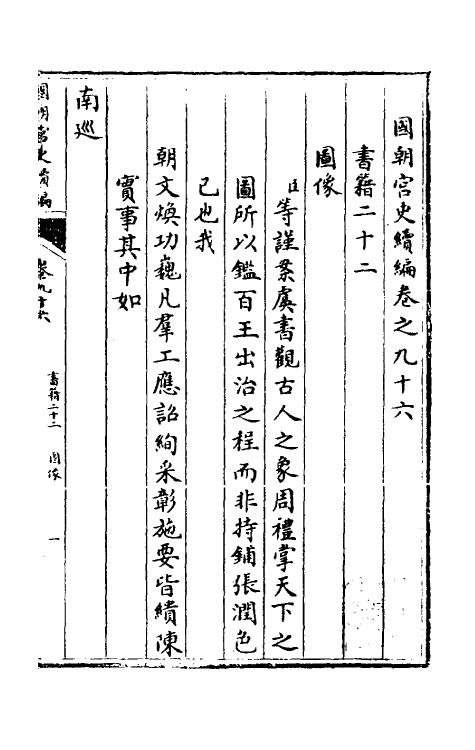 國朝宮史續編卷之九十六
書籍二十二
圖像
臣等謹案虞書觀古人之象周禮掌天下之
圖所以鑑百王出治之程而非特鋪張潤色
已也我
朝文煥功巍凡羣工應詔絢采彰施要皆繢陳
實事其中如
南巡
國朝宮史續編
卷九十六
書籍二十二
圖像
一